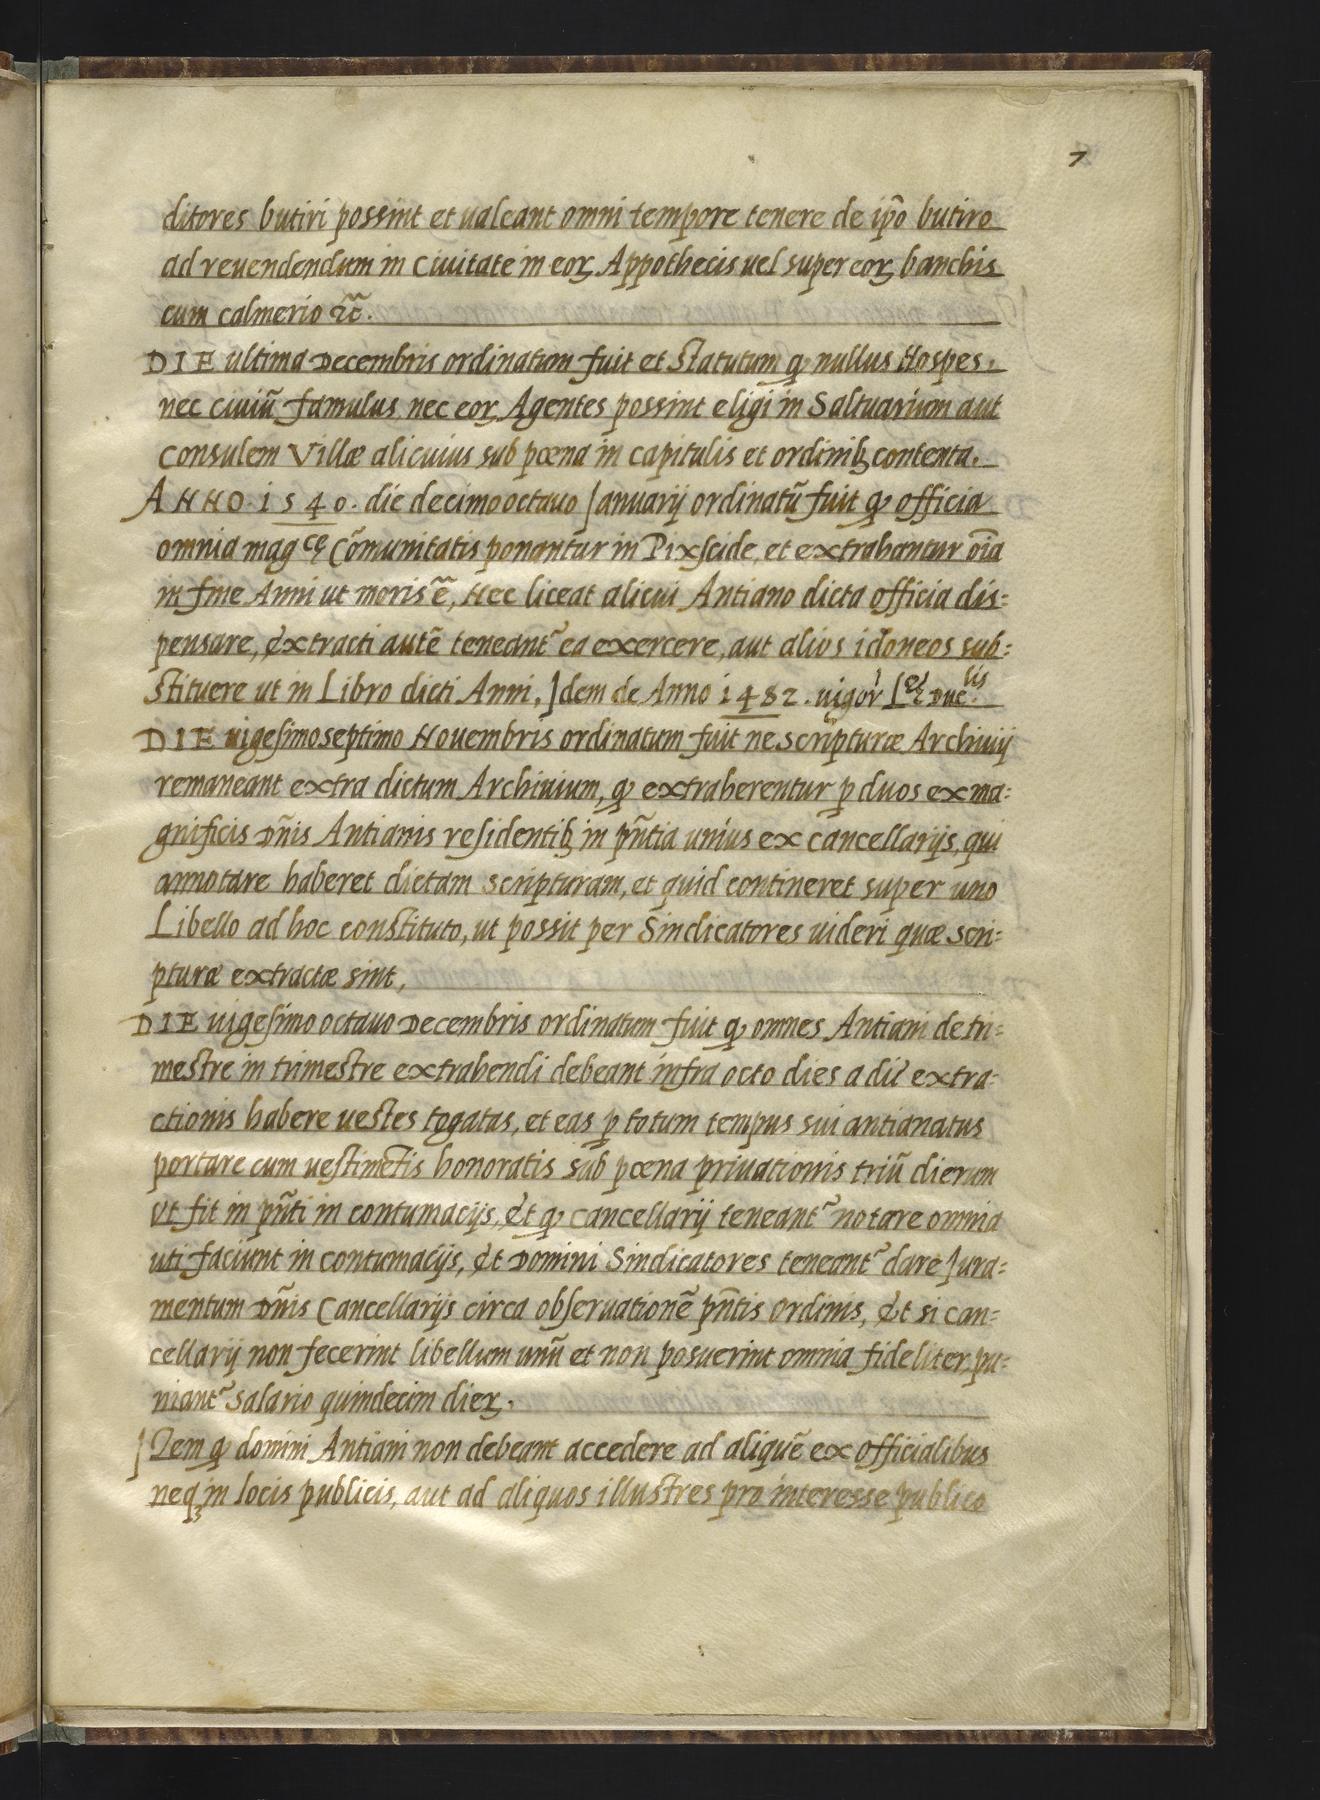 7
ditores butiri possint et ualeant omni tempore tenere de ip̃o butiro
ad reuendendum in Ciuitate in eoꝝ Appothecis uel super eoꝝ banchis
cum calmerio ⁊c̃.
DIE ultima Decembris ordinatum fuit et Statutum ꝙ nullus Hospes.
nec ciuiũ famulus, nec eoꝝ Agentes possint eligi in Saltuarium aut
Consulem Villæ alicuius sub pœna in capitulis et ordinibꝫ contenta.
ANNO 1540. die decimooctauo Januarij ordinatũ fuit ꝙ officia
omnia magcę Cõmunitatis ponantur in Pixſcide, et extrahantur oĩa
in fine Anni ut moris ẽ, Nec liceat alicui Antiano dicta officia dis=
pensare, Extracti autẽ teneantᷣ ea exercere, aut alios idoneos sub=
stituere ut in Libro dicti Anni, Jdem de Anno 1482. uigor̃ Duc.lis
DIE uigesimoseptimo Nouembris ordinatum fuit ne scripturæ Archiuij
remaneant extra dictum Archiuium, ꝙ extraherentur ꝑ duos ex ma=
gnificis Dñis Antianis residentibꝫ in pñtia unius ex cancellarijs, qui
annotare haberet dictam scripturam, et quid contineret super uno
Libello ad hoc constituto, ut possit per Sindicatores uideri quæ scri=
pturæ extractæ sint,
DIE uigesimo octauo Decembris ordinatum fuit ꝙ omnes Antiani de tri=
mestre in trimestre extrahendi debeant infra octo dies a die extra=
ctionis habere uestes togatas, et eas ꝑ totum tempus sui antianatus
portare cum uestimẽtis honoratis sub pœna priuationis triũ dierum
Vt fit in pñti in contumacijs, Et ꝙ Cancellarij teneantᷣ notare omnia
uti faciunt in contumacijs, Et Domini Sindicatores teneantᷣ dare Jura=
mentum Dñis Cancellarijs circa obseruationẽ pñtis Ordinis, Et si Can=
cellarij non fecerint libellum unũ et non posuerint omnia fideliter pu=
niantᷣ Salario quindecim dieꝝ.
Jtem ꝙ domini Antiani non debeant accedere ad aliquẽ ex Officialibus
neqꝫ in locis publicis, aut ad aliquos illustres pro interesse publico